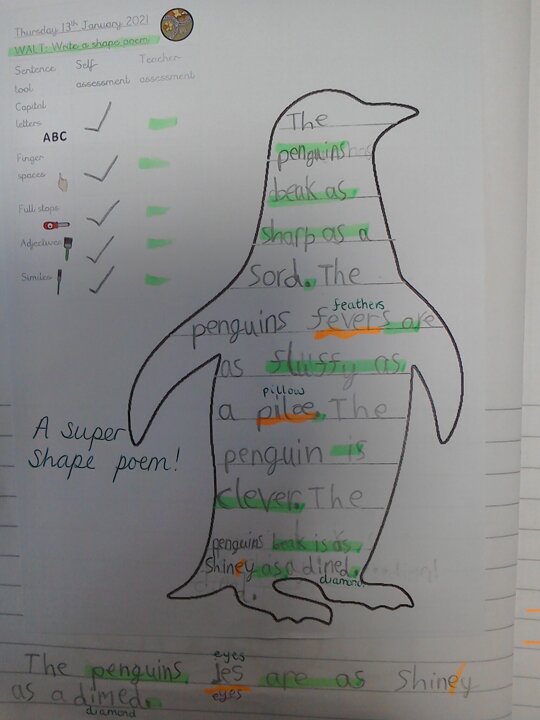 Thursday 13th January 2021
WALT: Write a shape poem.
Sentence tool Self assessment Teacher assessment
Capital letters
ABC
Finger spaces
Full stops
Adjectives
Similes
The
penguins has
beak as
sharp as a
Sord. The
feathers
penguins fevers are
as fluffy as
pillow
a piloe. The
penguin is
clever. The
penguins beak is as
Shiney as a dimed.
diamond
A super
Shape poem!
eyes
The penguins ies are as Shiney
eyes
as a dimed.
diamond